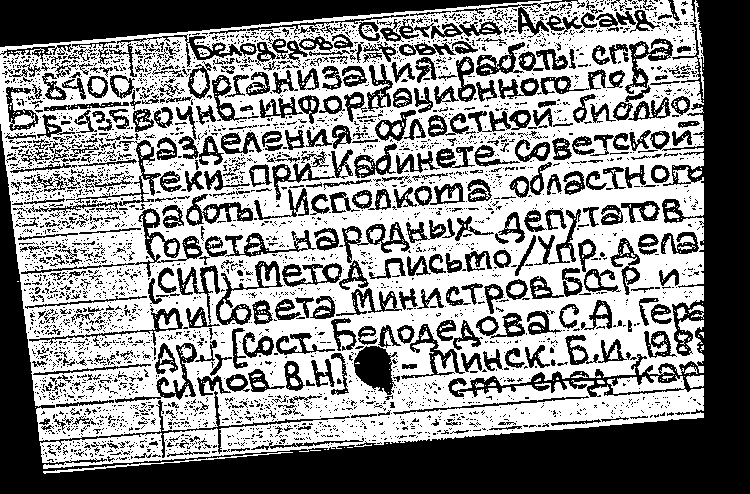 Белодедова Светлана Александ-
ровна
Б 8400 Организация работы спра-
Б-435 вочно-информационного под-
разделения областной библио-
теки при Кабинете советской
работы Исполкома областного
Совета народных депутатов
(СИП): Метод. письмо/Упр. дела-
ми Совета Министров БССР и
др.; [Сост. Белодедова С.А., Гера
ситов В.Н.] – Минск: Б.И., 1988
см. след. кар